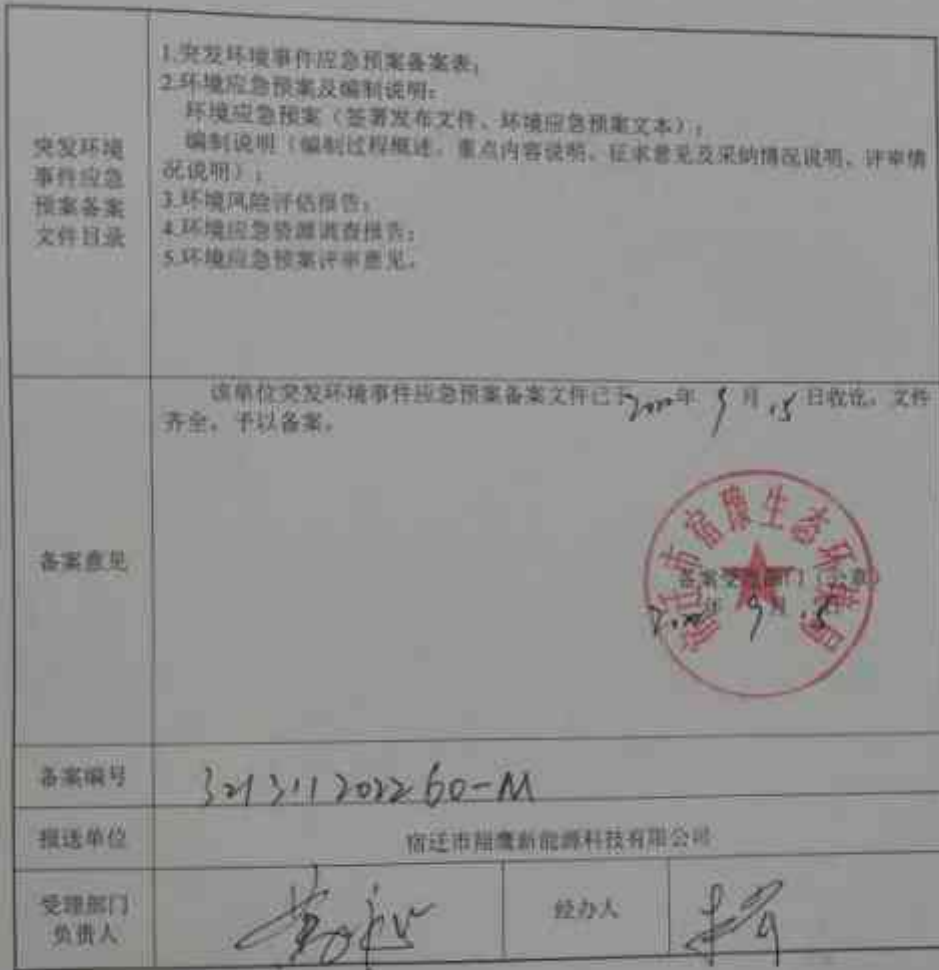 突发环境
事件应急
预案备案
文件目录
1.突发环境事件应急预案备案表;
2.环境应急预案及编制说明:
环境应急预案(签署发布文件、环境应急预案文本);
编制说明(编制过程概述、重点内容说明、征求意见及采纳情况说明、评审情
况说明);
3.环境风险评估报告;
4.环境应急资源调查报告;
5.环境应急预案评审意见。
备案意见
该单位突发环境事件应急预案备案文件已于 年 9 月 15 日收讫,文件
齐全,予以备案。
宿迁市宿豫生态环境局
备案受理部门(公章)
年 9 月 15
备案编号
321311202260-M
报送单位
宿迁市翔鹰新能源科技有限公司
受理部门
负责人
经办人